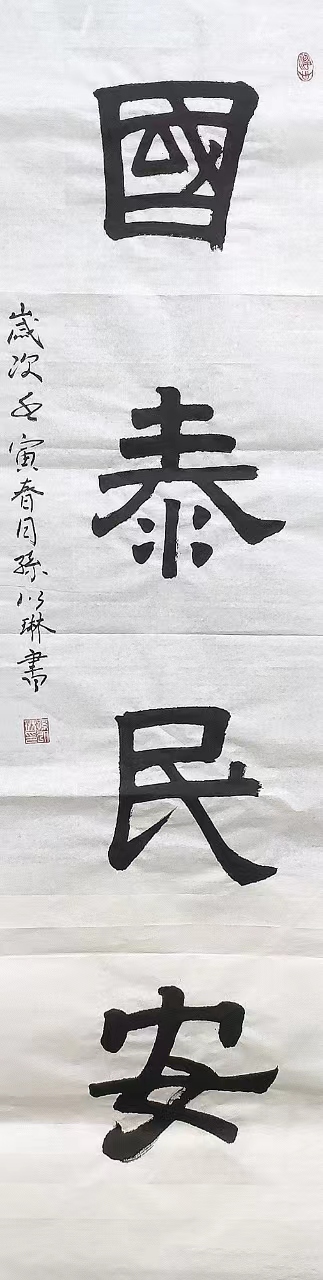 國泰民安
歲次壬寅春月孫以琳書